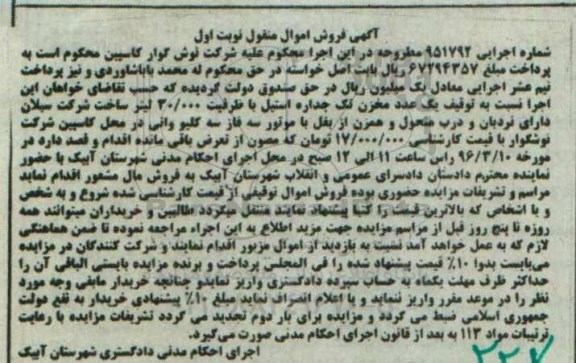 آگهی فروش اموال منقول نوبت اول
شماره اجرایی ۹۵۱۷۹۲ مطروحه در این اجرا محکوم علیه شرکت نوش گوار کاسپین محکوم است به
پرداخت مبلغ ۶۷۲۹۴۳۵۷ ریال بابت اصل خواسته در حق محکوم له محمد باباشاوردی و نیز پرداخت
نیم عشر اجرایی معادل یک میلیون ریال در حق صندوق دولت گردیده که حسب تقاضای خواهان این
اجرا نسبت به توقیف یک عدد مخزن تک جداره استیل با ظرفیت ۳۰/۰۰۰ لیتر ساخت شرکت سبلان
دارای نردبان و درب متحول و همزن از بغل با موتور سه فاز سه کلیو واتی در محل کاسپین شرکت
نوشگوار با قیمت کارشناسی ۱۷/۰۰۰/۰۰۰ تومان که مصون از تعرض باقی مانده اقدام و قصد دارد در
مورخه ۹۶/۳/۱۰ راس ساعت ۱۱ الی ۱۲ صبح در محل اجرای احکام مدنی شهرستان آبیک با حضور
نماینده محترم دادستان دادسرای عمومی و انقلاب شهرستان آبیک به فروش مال مشعور اقدام نماید
مراسم و تشریفات مزایده حضوری بوده فروش اموال توقیفی از قیمت کارشناسی شده شروع و به شخص
و یا اشخاص که بالاترین قیمت را کتبا پیشنهاد نمایند منتقل میگردد طالبین و خریداران میتوانند همه
روزه تا پنج روز قبل از مراسم مزایده جهت مزید اطلاع به این اجراء مراجعه نموده تا ضمن هماهنگی
لازم که به عمل خواهد آمد نسبت به بازدید از اموال مزبور اقدام نمایند و شرکت کنندگان در مزایده
می‌بایست بدوا ۱۰٪ قیمت پیشنهاد شده را فی المجلس پرداخت و برنده مزایده بایستی الباقی آن را
حداکثر ظرف مهلت یکماه به حساب سپرده دادگستری واریز نمایدو چنانچه خریدار مابقی وجه مورد
نظر را در موعد مقرر واریز ننماید و یا اعلام انصراف نماید مبلغ ۱۰٪ پیشنهادی خریدار به نفع دولت
جمهوری اسلامی ضبط می گردد و مزایده برای بار دوم تجدید می گردد تشریفات مزایده با رعایت
ترتیبات مواد ۱۱۳ به بعد از قانون اجرای احکام مدنی صورت می‌گیرد.
اجرای احکام مدنی دادگستری شهرستان آبیک